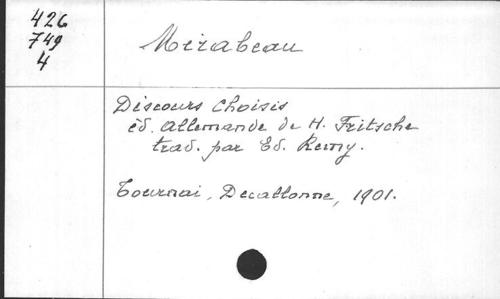 426
749
4
Mirabeau
Discours Choisis
éd. Allemande de H. Fritsche
trad. par Ed. Remy.
Tournai, Decallonne, 1901.